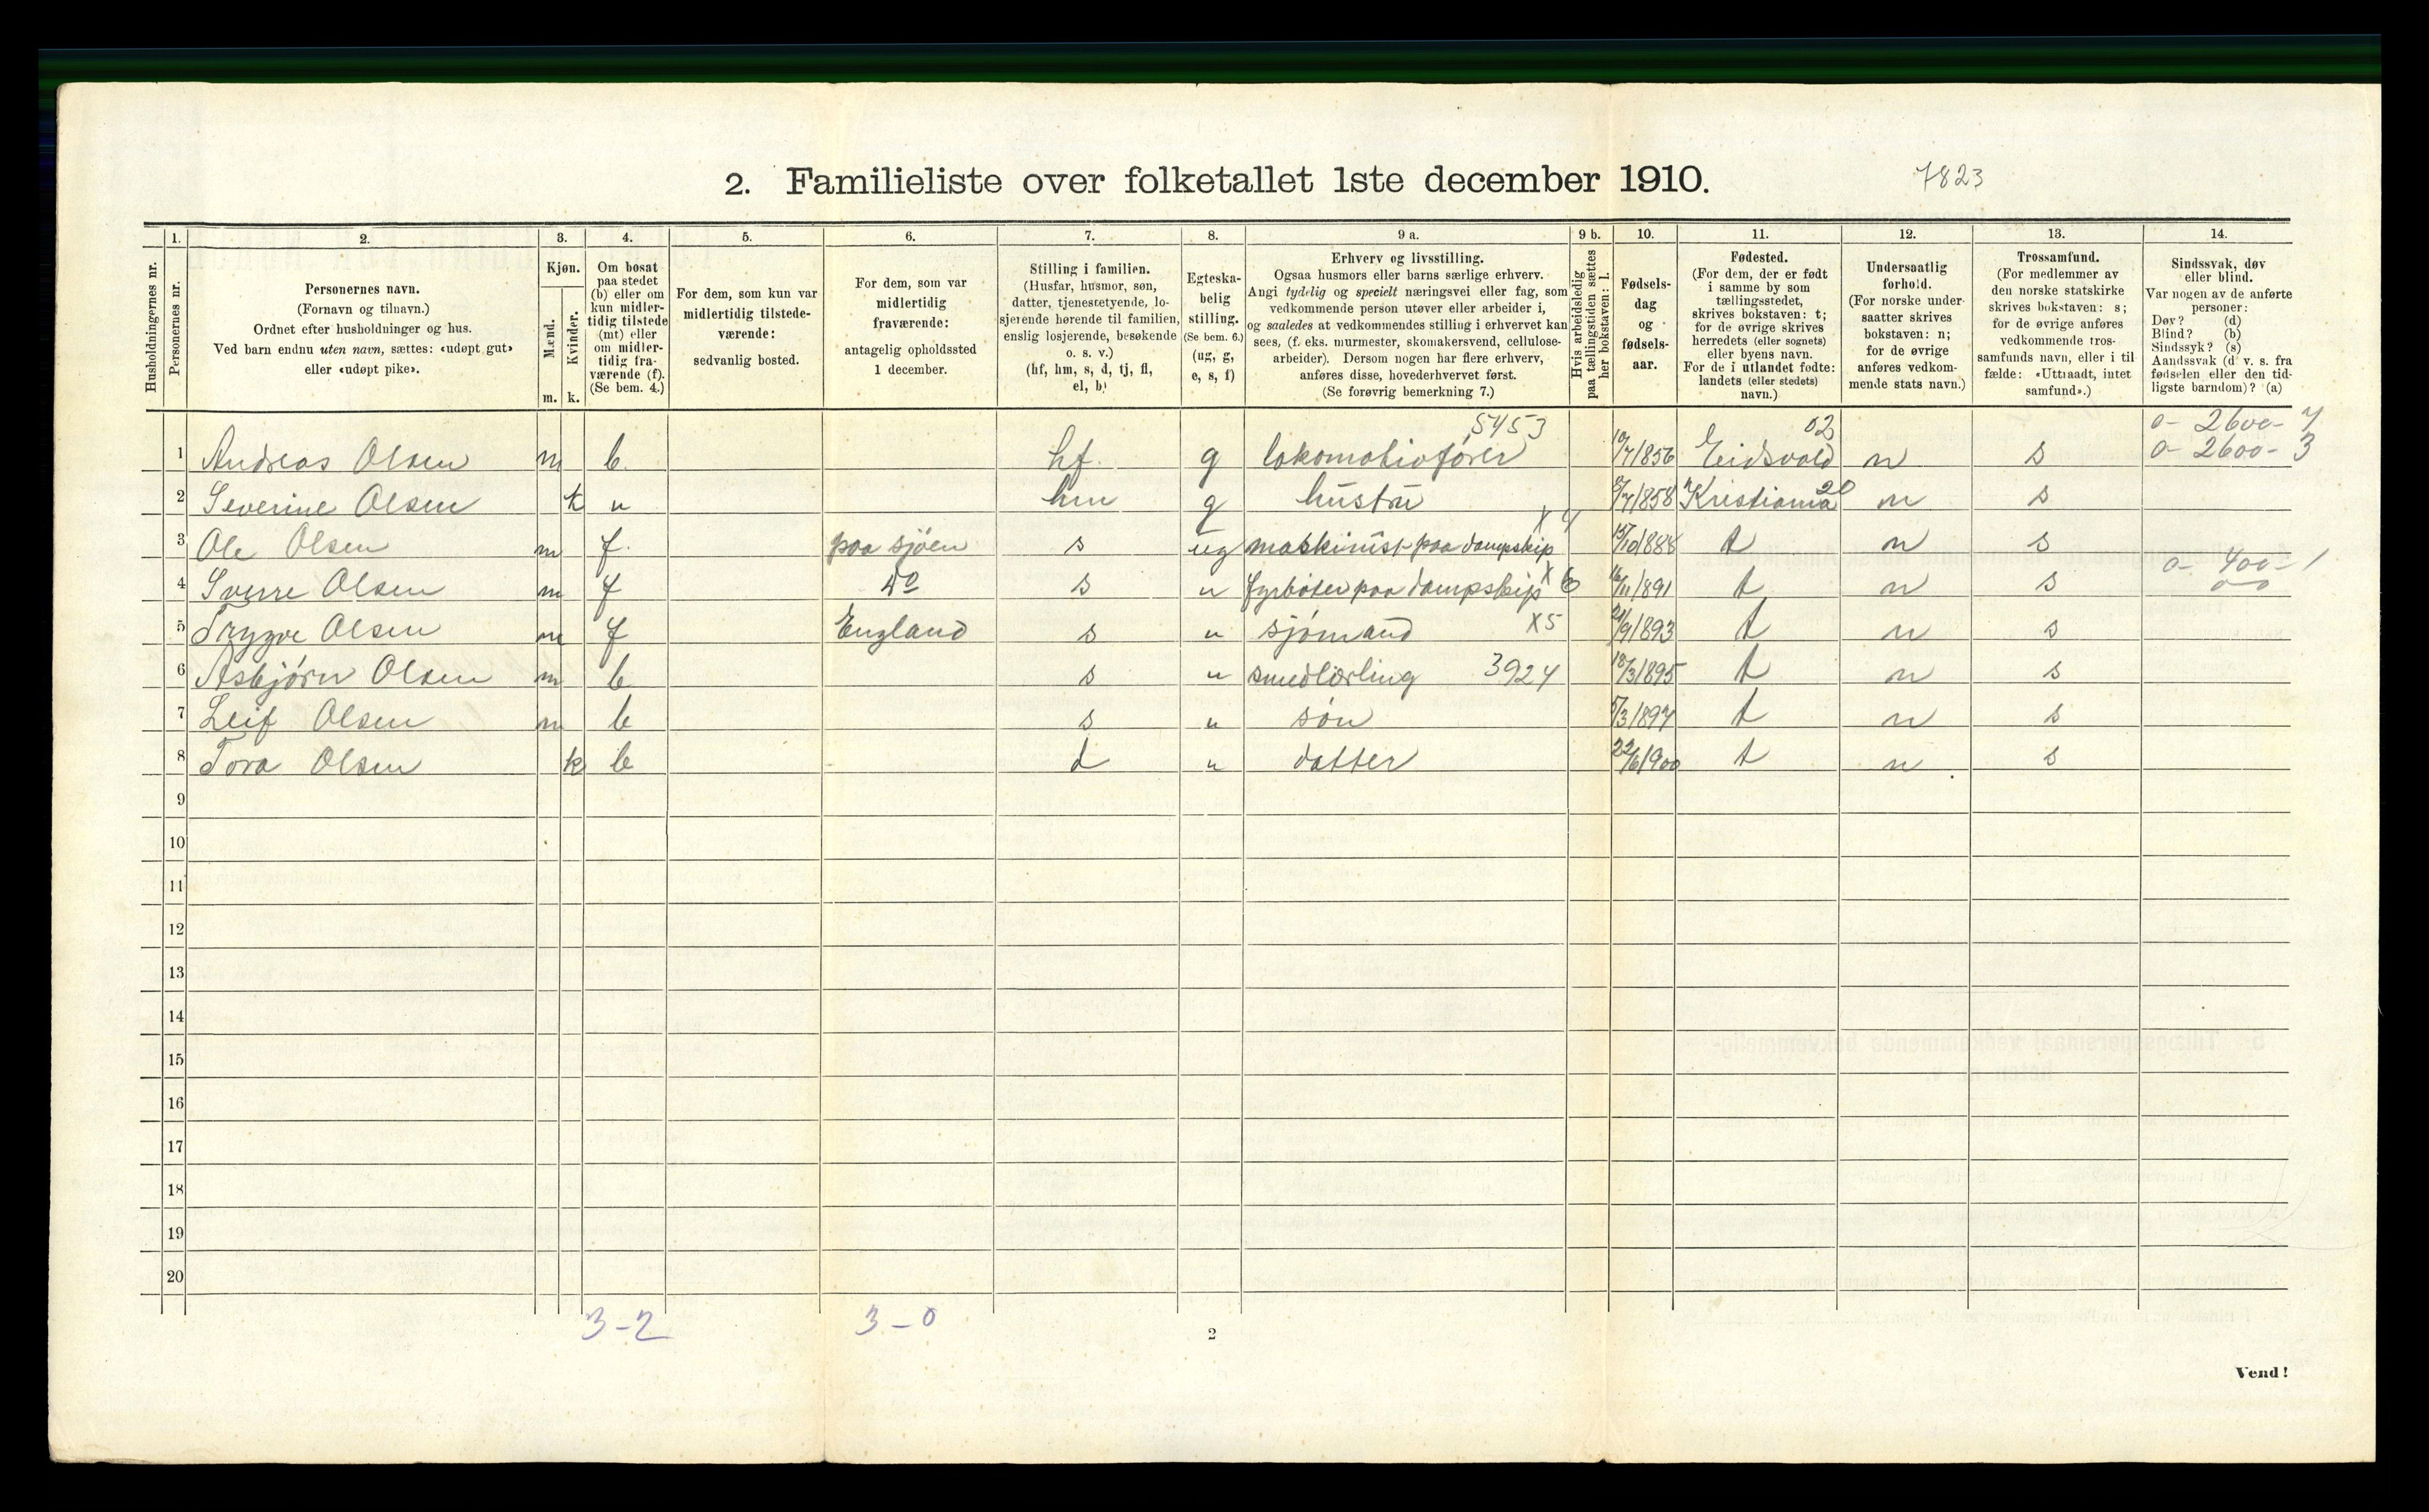 2. Familieliste over folketallet 1ste december 1910. 7823
Husholdningernes nr.
1.
Personernes nr.
2.
Personernes navn.
(Fornavn og tilnavn.)
Ordnet efter husholdninger og hus.
Ved barn endnu uten navn, sættes: «udøpt gut»
eller «udøpt pike».
3.
Kjøn.
Mænd.
Kvinder.
m. k.
4.
Om bosat
paa stedet
(b) eller om
kun midler-
tidig tilstede
(mt) eller
om midler-
tidig fra-
værende (f).
(Se bem. 4.)
5.
For dem, som kun var
midlertidig tilstede-
værende:
sedvanlig bosted.
6.
For dem, som var
midlertidig
fraværende:
antagelig opholdssted
1 december.
7.
Stilling i familien.
(Husfar, husmor, søn,
datter, tjenestetyende, lo-
sjerende hørende til familien,
enslig losjerende, besøkende
o. s. v.)
(hf, hm, s, d, tj, fl,
el, b)
8.
Egteska-
belig
stilling.
(Se bem. 6.)
(ug, g,
e, s, f)
9 a.
Erhverv og livsstilling.
Ogsaa husmors eller barns særlige erhverv.
Angi tydelig og specielt næringsvei eller fag, som
vedkommende person utøver eller arbeider i,
og saaledes at vedkommendes stilling i erhvervet kan
sees, (f. eks. murmester, skomakersvend, cellulose-
arbeider). Dersom nogen har flere erhverv,
anføres disse, hovederhvervet først.
(Se forøvrig bemerkning 7.)
9 b.
Hvis arbeidsledig
paa tællingstiden sættes
her bokstaven: l.
10.
Fødsels-
dag
og
fødsels-
aar.
11.
Fødested.
(For dem, der er født
i samme by som
tællingsstedet,
skrives bokstaven: t;
for de øvrige skrives
herredets (eller sognets)
eller byens navn.
For de i utlandet fødte:
landets (eller stedets)
navn.)
12.
Undersaatlig
forhold.
(For norske under-
saatter skrives
bokstaven: n;
for de øvrige
anføres vedkom-
mende stats navn.)
13.
Trossamfund.
(For medlemmer av
den norske statskirke
skrives bokstaven: s;
for de øvrige anføres
vedkommende tros-
samfunds navn, eller i til
fælde: «Uttraadt, intet
samfund».)
14.
Sindssvak, døv
eller blind.
Var nogen av de anførte
personer:
Døv? (d)
Blind? (b)
Sindssyk? (s)
Aandssvak (d. v. s. fra
fødselen eller den tid-
ligste barndom)? (a)
5453 02 0- 2600- 7
1 Andreas Olsen m b. hf. g lokomotivfører 10/7 1856 Eidsvold n s 0- 2600- 3
2 Severine Olsen k " hm g hustru 8/7 1858 Kristiania 20 n s
3 Ole Olsen m f. paa sjøen s ug maskinist paa dampskip x 4 15/10 1888 t n s
4 Sverre Olsen m f do s " fyrbøter paa dampskip x 6 16/11 1891 t n s 0- 400- 1
5 Trygve Olsen m f England s " sjømand x5 21/9 1893 t n s
6 Asbjørn Olsen m b s " smedlærling 3924 18/3 1895 t n s
7 Leif Olsen m b s " søn 5/3 1897 t n s
8 Tora Olsen k b d " datter 22/6 1900 t n s
9
10
11
12
13
14
15
16
17
18
19
20
3-2 3-0
2
Vend!